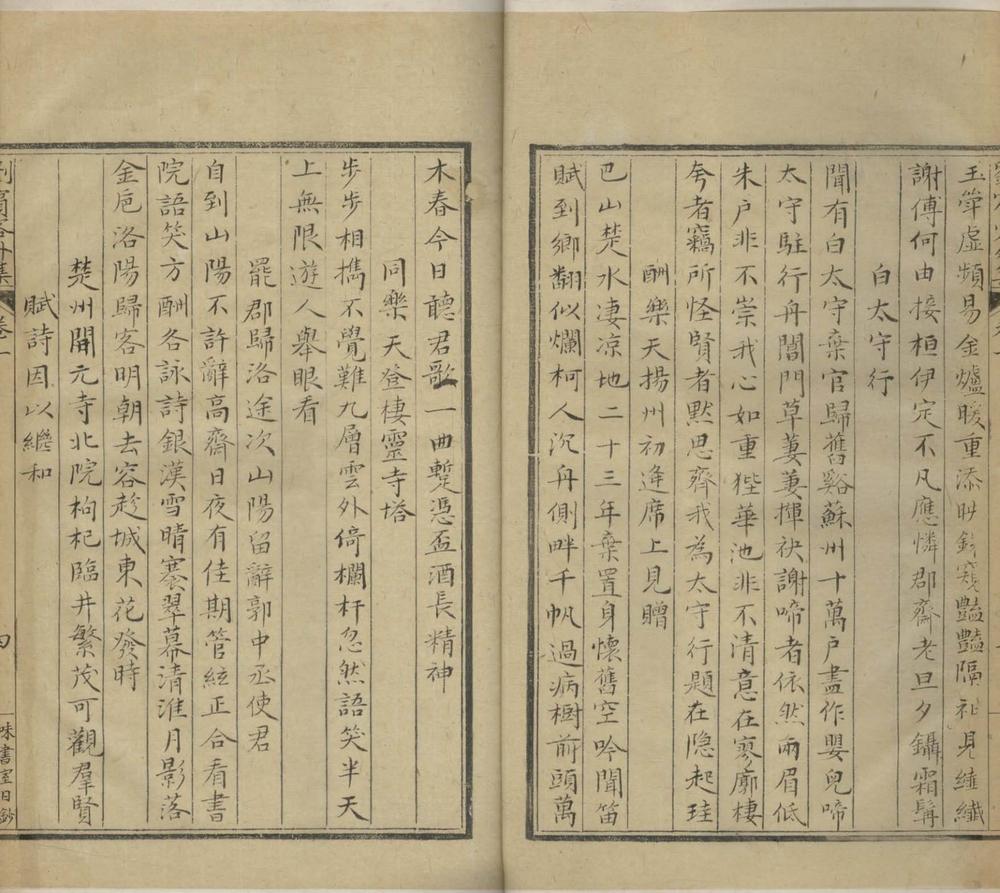 玉筝虛頻易金爐暖重添
謝傅何由接桓伊定不凡應憐郡齋老旦夕鑷霜髯
白太守行
聞有白太守棄官歸舊谿蘇州十萬戶盡作嬰兒啼
太守駐行舟閶門草萋萋揮袂謝啼者依然兩眉低
朱户非不崇我心如重狴華池非不清意在寥廓棲
夸者竊所怪賢者默思齊我為太守行題在隐起珪
酬樂天揚州初逢席上見贈
巴山楚水凄凉地二十三年棄置身懷舊空吟聞笛
賦到鄉翻似爛柯人沉舟側畔千帆過病樹前頭萬
木春今日聽君歌一曲暫憑盃酒長精神
同樂天登棲靈寺塔
步步相擕不覺難九層雲外倚欄杆忽然語笑半天
上無限遊人舉眼看
罷郡歸洛途次山陽留辭郭中丞使君
自到山陽不許辭高齋日夜有佳期管絃正合看書
院語笑方酬各詠詩銀漢雪晴褰翠幕清淮月影落
金巵洛陽歸客明朝去容趁城東花發時
楚州開元寺北院枸杞臨井繁茂可觀羣賢
賦詩因以繼和
劉賓客外集 卷一
四
味書室日鈔